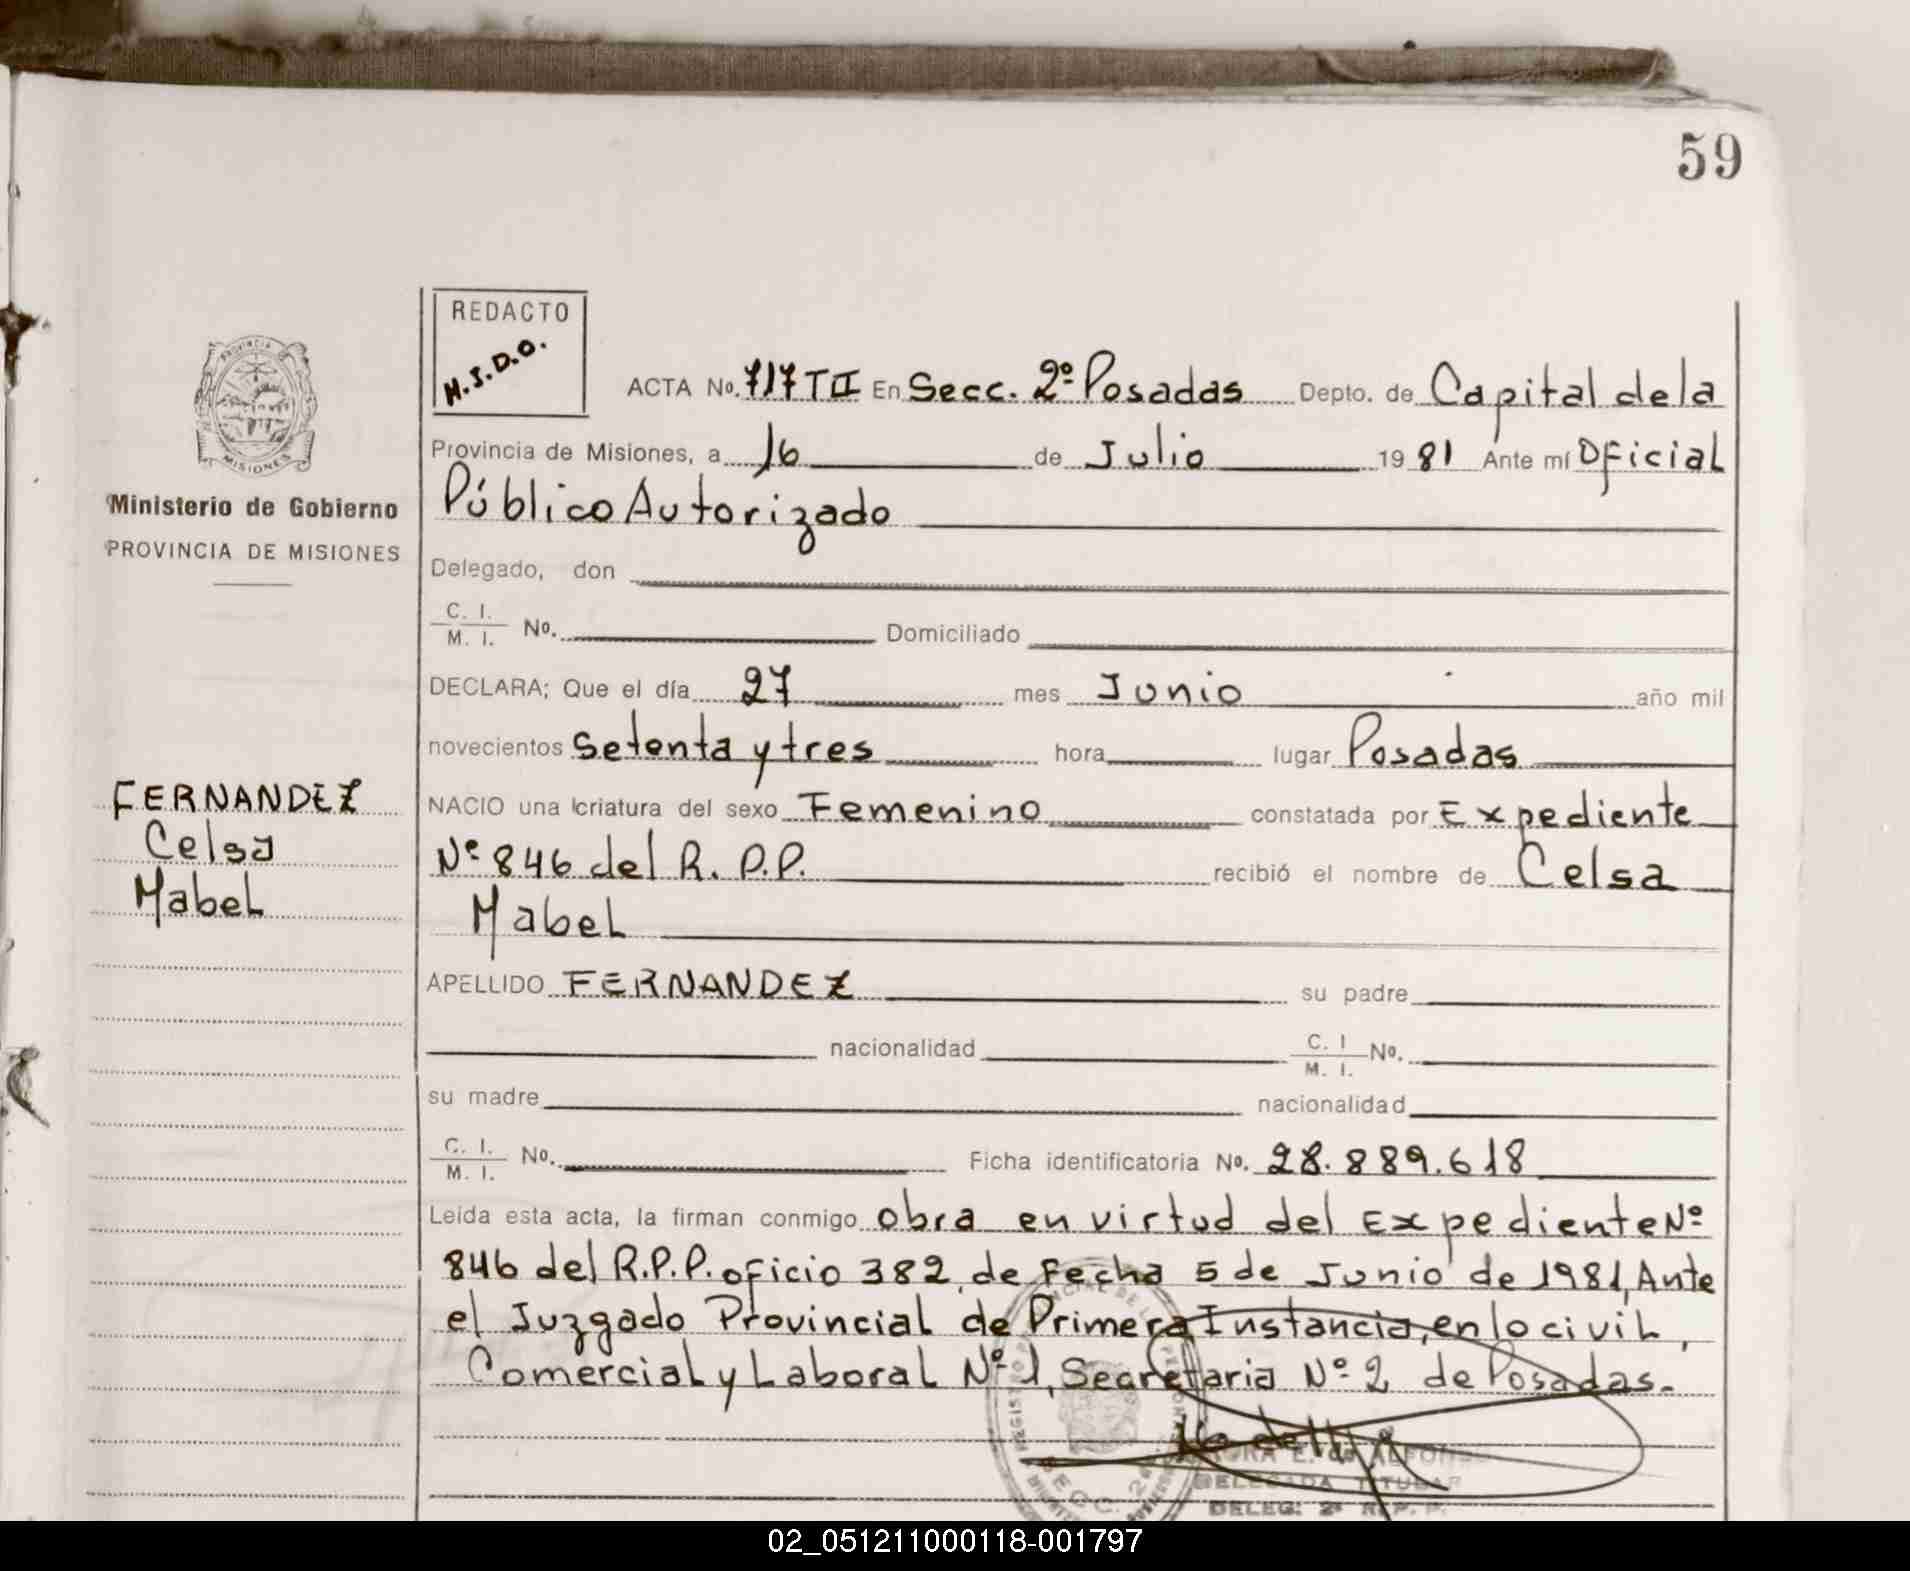 59
REDACTO
H.S.D.O.
ACTA No. 717 TII En Secc. 2º Posadas Depto. de Capital de la
Provincia de Misiones, a 16 de Julio 1981 Ante mí Oficial
Público Autorizado
Delegado, don
C. I.
M. I. No. Domiciliado
DECLARA; Que el día 27 mes Junio año mil
novecientos setenta y tres hora lugar Posadas
NACIO una criatura del sexo Femenino constatada por Expediente
Nº 846 del R. P.P. recibió el nombre de Celsa
Mabel
APELLIDO FERNANDEZ su padre
nacionalidad C. I
M. I. No.
su madre nacionalidad
C. I.
M. I. No. Ficha identificatoria No. 28.889.618
Leída esta acta, la firman conmigo obra en virtud del Expediente Nº
846 del R.P.P. oficio 382 de Fecha 5 de Junio de 1981, Ante
el Juzgado Provincial de Primera Instancia, en lo civil,
Comercial y Laboral Nº 1, Secretaria Nº 2 de Posadas.
PROVINCIA DE
MISIONES
Ministerio de Gobierno
PROVINCIA DE MISIONES
FERNANDEZ
Celsa
Mabel
E. de ALFONSO
DELEGADA TITULAR
DELEG. 2ª
SECC. 2ª
02_051211000118-001797